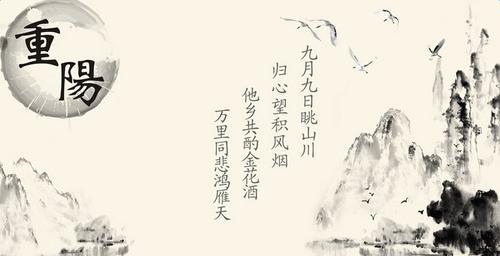 重陽
九月九日眺山川
归心望积风烟
他乡共酌金花酒
万里同悲鸿雁天